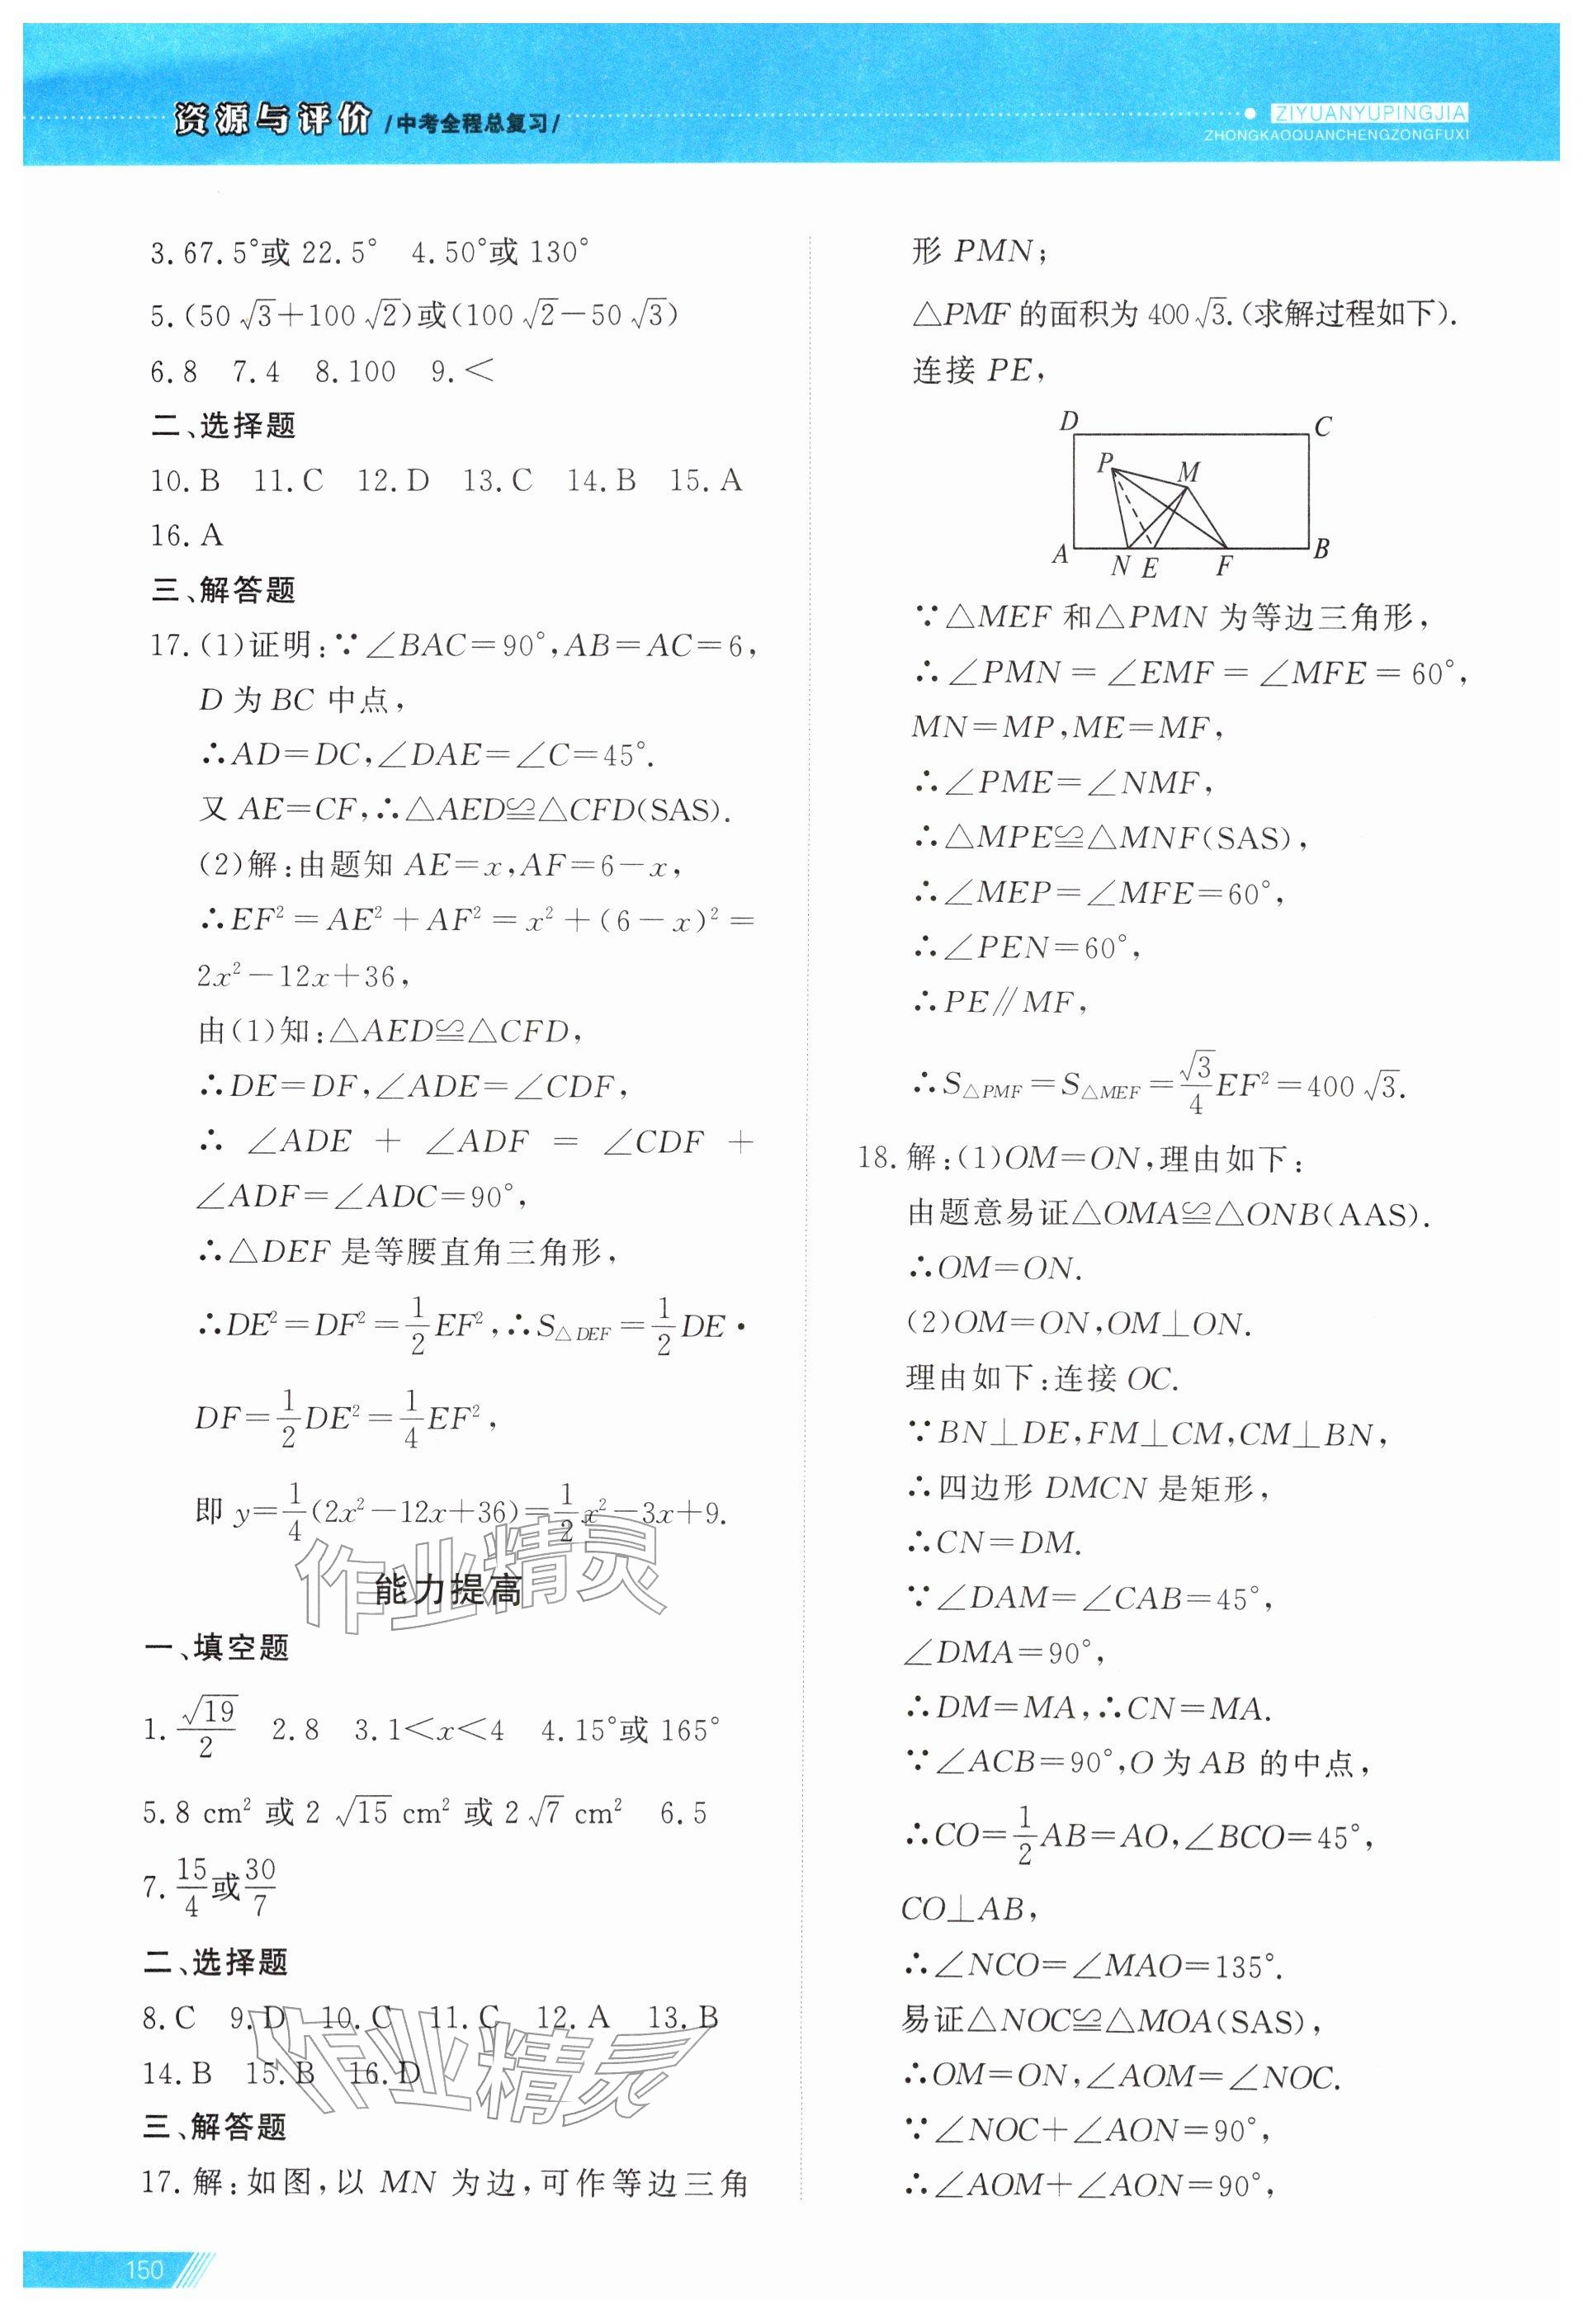 资源与评价 /中考全程总复习/
ZIYUANYUPINGJIA
ZHONGKAOQUANCHENGZONGFUXI
3.67.5°或 22.5°  4.50°或 130°
5.(50√3+100√2)或(100√2-50√3)
6.8  7.4  8.100  9.<
二、选择题
10.B  11.C  12.D  13.C  14.B  15.A
16.A
三、解答题
17.(1)证明:∵∠BAC=90°,AB=AC=6,
D 为 BC 中点,
∴AD=DC,∠DAE=∠C=45°.
又 AE=CF,∴△AED≌△CFD(SAS).
(2)解:由题知 AE=x,AF=6-x,
∴EF²=AE²+AF²=x²+(6-x)²=
2x²-12x+36,
由(1)知:△AED≌△CFD,
∴DE=DF,∠ADE=∠CDF,
∴∠ADE+∠ADF=∠CDF+
∠ADF=∠ADC=90°,
∴△DEF 是等腰直角三角形,
∴DE²=DF²=1/2EF²,∴S△DEF=1/2DE·
DF=1/2DE²=1/4EF²,
即 y=1/4(2x²-12x+36)=1/2x²-3x+9.
作业精灵
能力提高
一、填空题
1.√19/2  2.8  3.1<x<4  4.15°或 165°
5.8 cm² 或 2√15 cm² 或 2√7 cm²  6.5
7.15/4或30/7
二、选择题
8.C  9.D  10.C  11.C  12.A  13.B
14.B  15.B  16.D
作业精灵
三、解答题
17.解:如图,以 MN 为边,可作等边三角
150
形 PMN;
△PMF 的面积为 400√3.(求解过程如下).
连接 PE,
D C
P M
A N E F B
∵△MEF 和△PMN 为等边三角形,
∴∠PMN=∠EMF=∠MFE=60°,
MN=MP,ME=MF,
∴∠PME=∠NMF,
∴△MPE≌△MNF(SAS),
∴∠MEP=∠MFE=60°,
∴∠PEN=60°,
∴PE∥MF,
∴S△PMF=S△MEF=√3/4EF²=400√3.
18.解:(1)OM=ON,理由如下:
由题意易证△OMA≌△ONB(AAS).
∴OM=ON.
(2)OM=ON,OM⊥ON.
理由如下:连接 OC.
∵BN⊥DE,FM⊥CM,CM⊥BN,
∴四边形 DMCN 是矩形,
∴CN=DM.
∵∠DAM=∠CAB=45°,
∠DMA=90°,
∴DM=MA,∴CN=MA.
∵∠ACB=90°,O 为 AB 的中点,
∴CO=1/2AB=AO,∠BCO=45°,
CO⊥AB,
∴∠NCO=∠MAO=135°.
易证△NOC≌△MOA(SAS),
∴OM=ON,∠AOM=∠NOC.
∵∠NOC+∠AON=90°,
∴∠AOM+∠AON=90°,